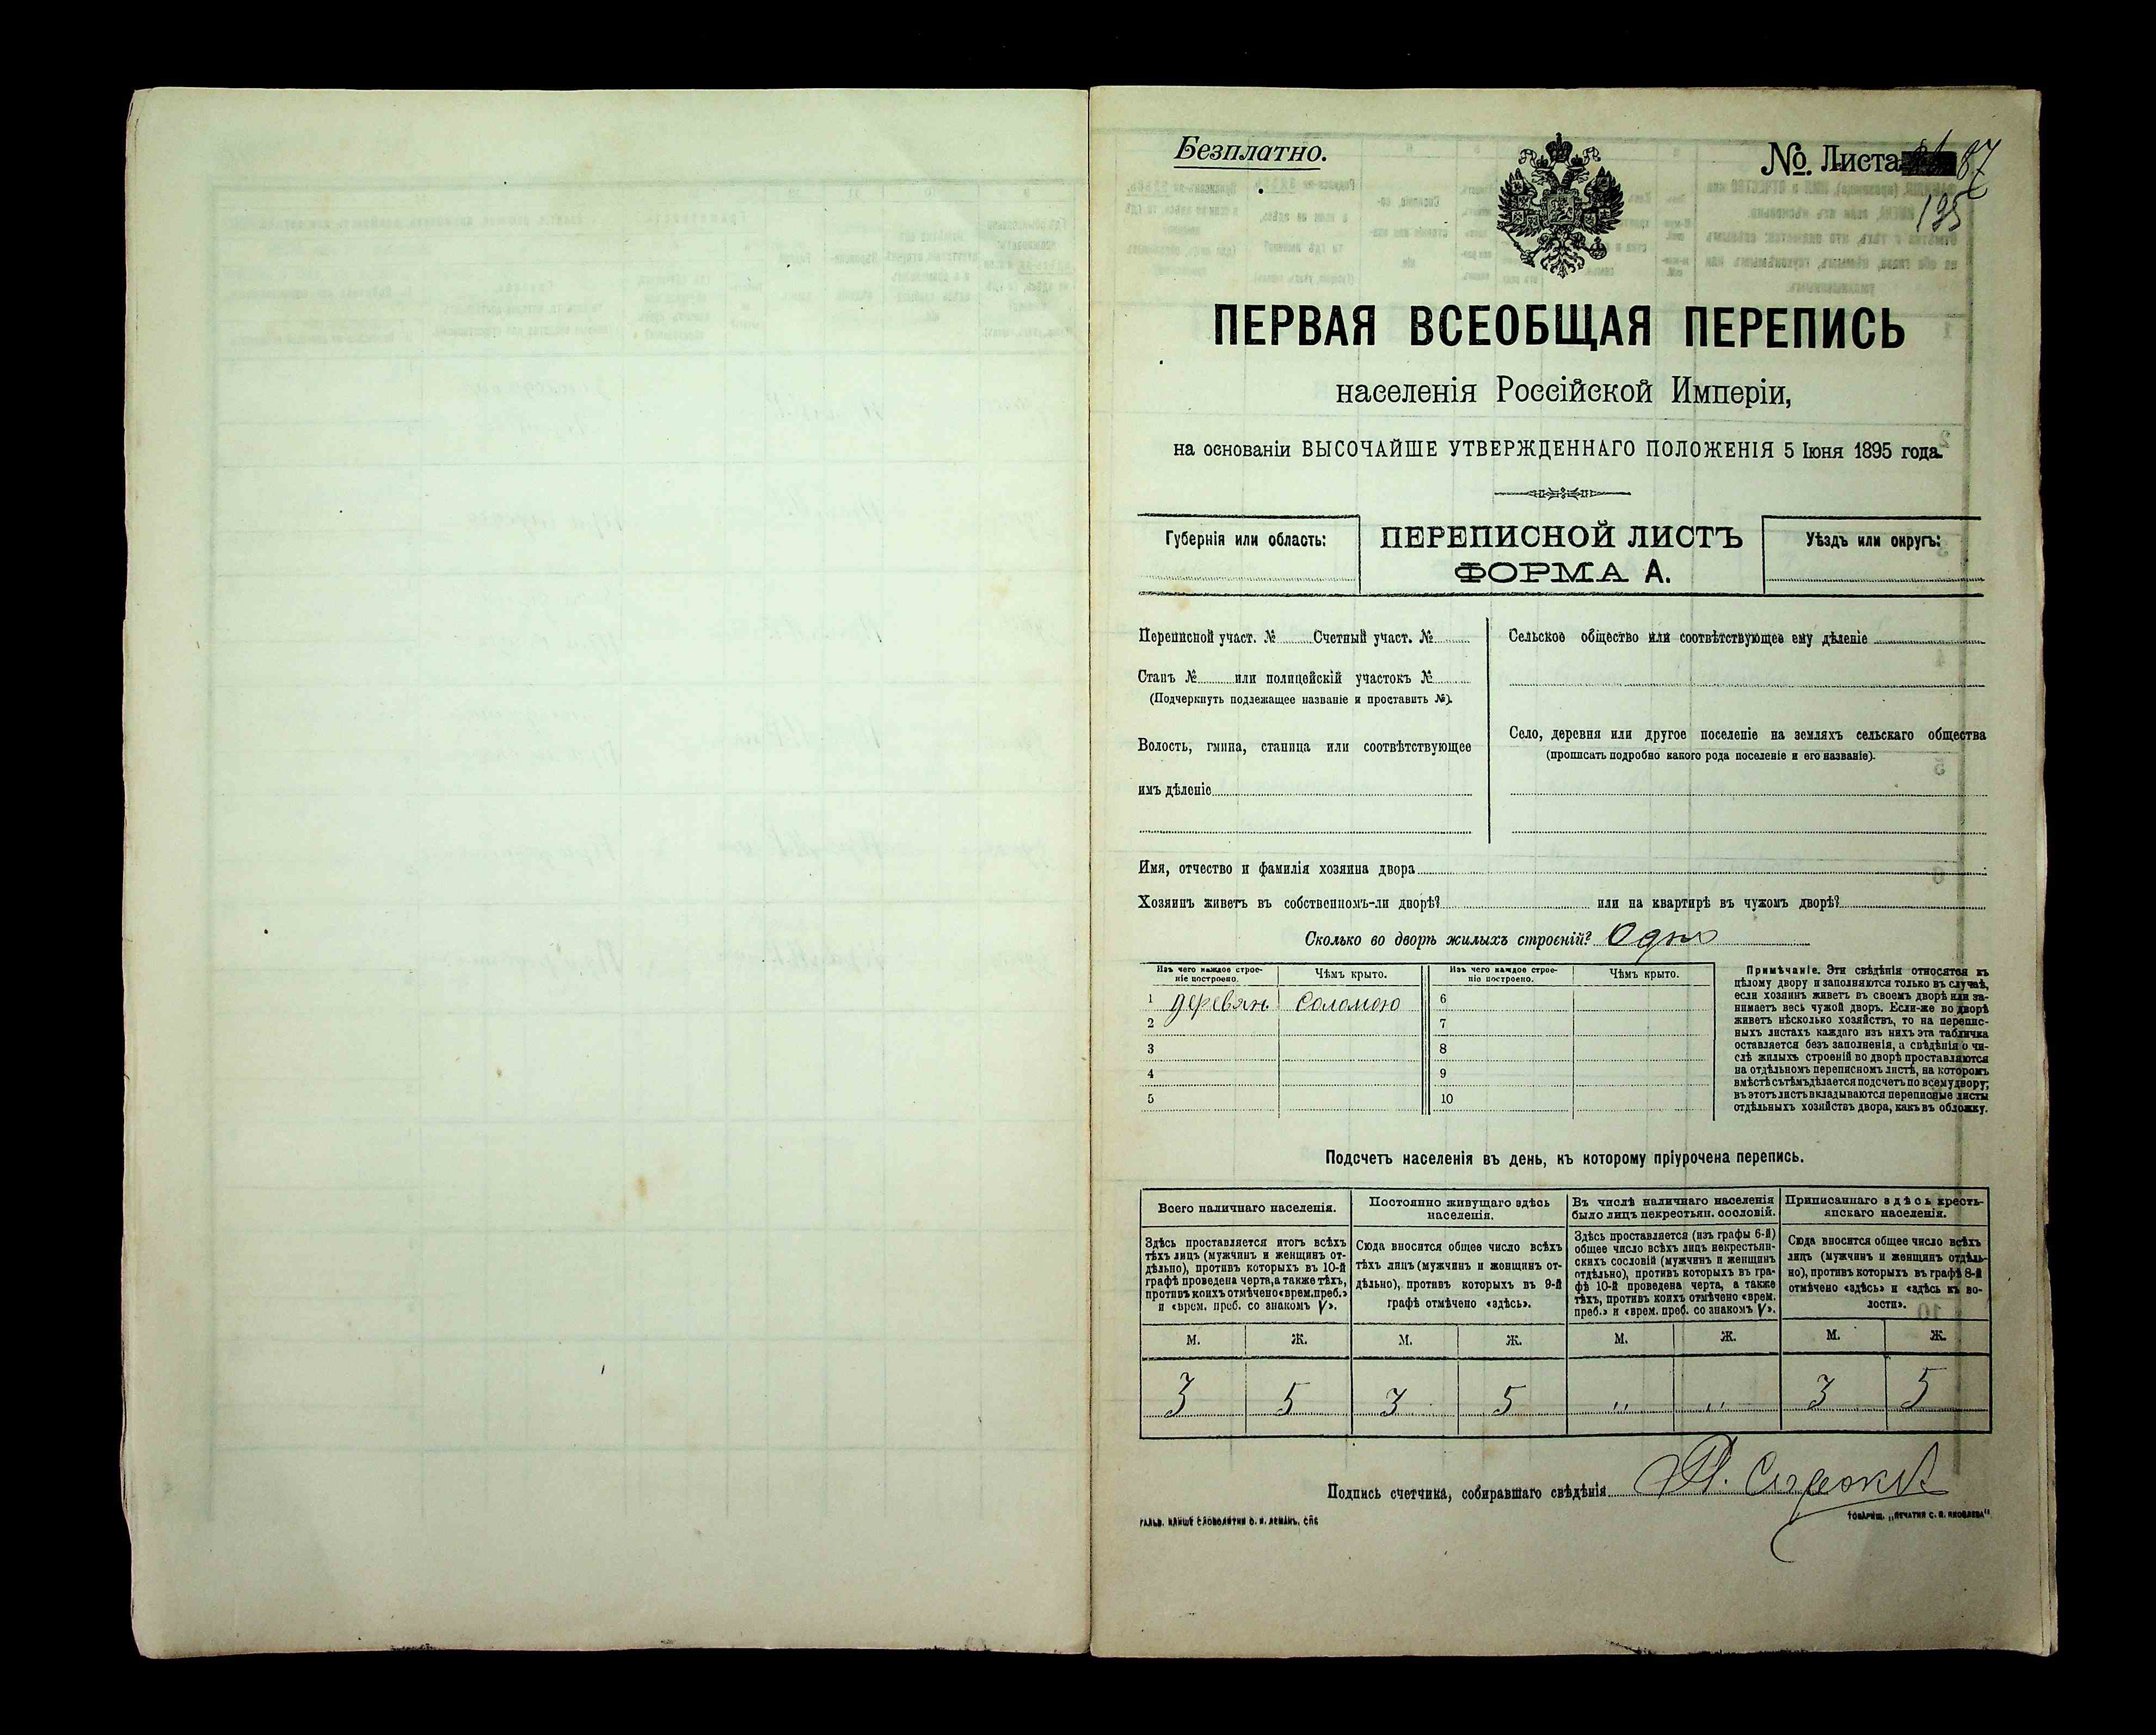 Безплатно.
№ Листа 87
195
ПЕРВАЯ ВСЕОБЩАЯ ПЕРЕПИСЬ
населенія Россійской Имперіи,
на основаніи ВЫСОЧАЙШЕ УТВЕРЖДЕННАГО ПОЛОЖЕНІЯ 5 Іюня 1895 года.
Губернія или область:
ПЕРЕПИСНОЙ ЛИСТЪ
ФОРМА А.
Уѣздъ или округъ:
Переписной участ. № Счетный участ. №
Станъ № или полицейскій участокъ №
(Подчеркнуть подлежащее названіе и проставить №).
Волость, гмина, станица или соотвѣтствующее
имъ дѣленіе
Сельское общество или соотвѣтствующее ему дѣленіе
Село, деревня или другое поселеніе на земляхъ сельскаго общества
(прописать подробно какого рода поселеніе и его названіе).
Имя, отчество и фамилія хозяина двора
Хозяинъ живетъ въ собственномъ-ли дворѣ? или на квартирѣ въ чужомъ дворѣ?
Сколько во дворѣ жилыхъ строеній? Одно
Изъ чего каждое строе-
ніе построено.
Чѣмъ крыто.
Изъ чего каждое строе-
ніе построено.
Чѣмъ крыто.
1 деревян. Соломою 6
2 7
3 8
4 9
5 10
Примѣчаніе. Эти свѣдѣнія относятся къ
цѣлому двору и заполняются только въ случаѣ,
если хозяинъ живетъ въ своемъ дворѣ или за-
нимаетъ весь чужой дворъ. Если-же во дворѣ
живетъ нѣсколько хозяйствъ, то на перепис-
ныхъ листахъ каждаго изъ нихъ эта табличка
оставляется безъ заполненія, а свѣдѣнія о чи-
слѣ жилыхъ строеній во дворѣ проставляются
на отдѣльномъ переписномъ листѣ, на которомъ
вмѣстѣ съ тѣмъ дѣлается подсчетъ по всему двору;
въ этотъ листъ вкладываются переписные листы
отдѣльныхъ хозяйствъ двора, какъ въ обложку.
Подсчетъ населенія въ день, къ которому пріурочена перепись.
Всего наличнаго населенія.
Здѣсь проставляется итогъ всѣхъ
тѣхъ лицъ (мужчинъ и женщинъ от-
дѣльно), противъ которыхъ въ 10-й
графѣ проведена черта, а также тѣхъ,
противъ коихъ отмѣчено «врем. преб.»
и «врем. преб. со знакомъ V».
Постоянно живущаго здѣсь
населенія.
Сюда вносится общее число всѣхъ
тѣхъ лицъ (мужчинъ и женщинъ от-
дѣльно), противъ которыхъ въ 9-й
графѣ отмѣчено «здѣсь».
Въ числѣ наличнаго населенія
было лицъ некрестьян. сословій.
Здѣсь проставляется (изъ графы 6-й)
общее число всѣхъ лицъ некрестьян-
скихъ сословій (мужчинъ и женщинъ
отдѣльно), противъ которыхъ въ гра-
фѣ 10-й проведена черта, а также
тѣхъ, противъ коихъ отмѣчено «врем.
преб.» и «врем. преб. со знакомъ V».
Приписаннаго здѣсь кресть-
янскаго населенія.
Сюда вносится общее число всѣхъ
лицъ (мужчинъ и женщинъ отдѣль-
но), противъ которыхъ въ графѣ 8-й
отмѣчено «здѣсь» и «здѣсь къ во-
лости».
М. Ж. М. Ж. М. Ж. М. Ж.
3 5 3 5 " " 3 5
Подпись счетчика, собиравшаго свѣдѣнія
ГАЛЬВ. КЛИШЕ СЛОВОЛИТНИ О. И. ЛЕМАНЪ, СПБ
ТОВАРИЩ. „ПЕЧАТНЯ С. П. ЯКОВЛЕВА“